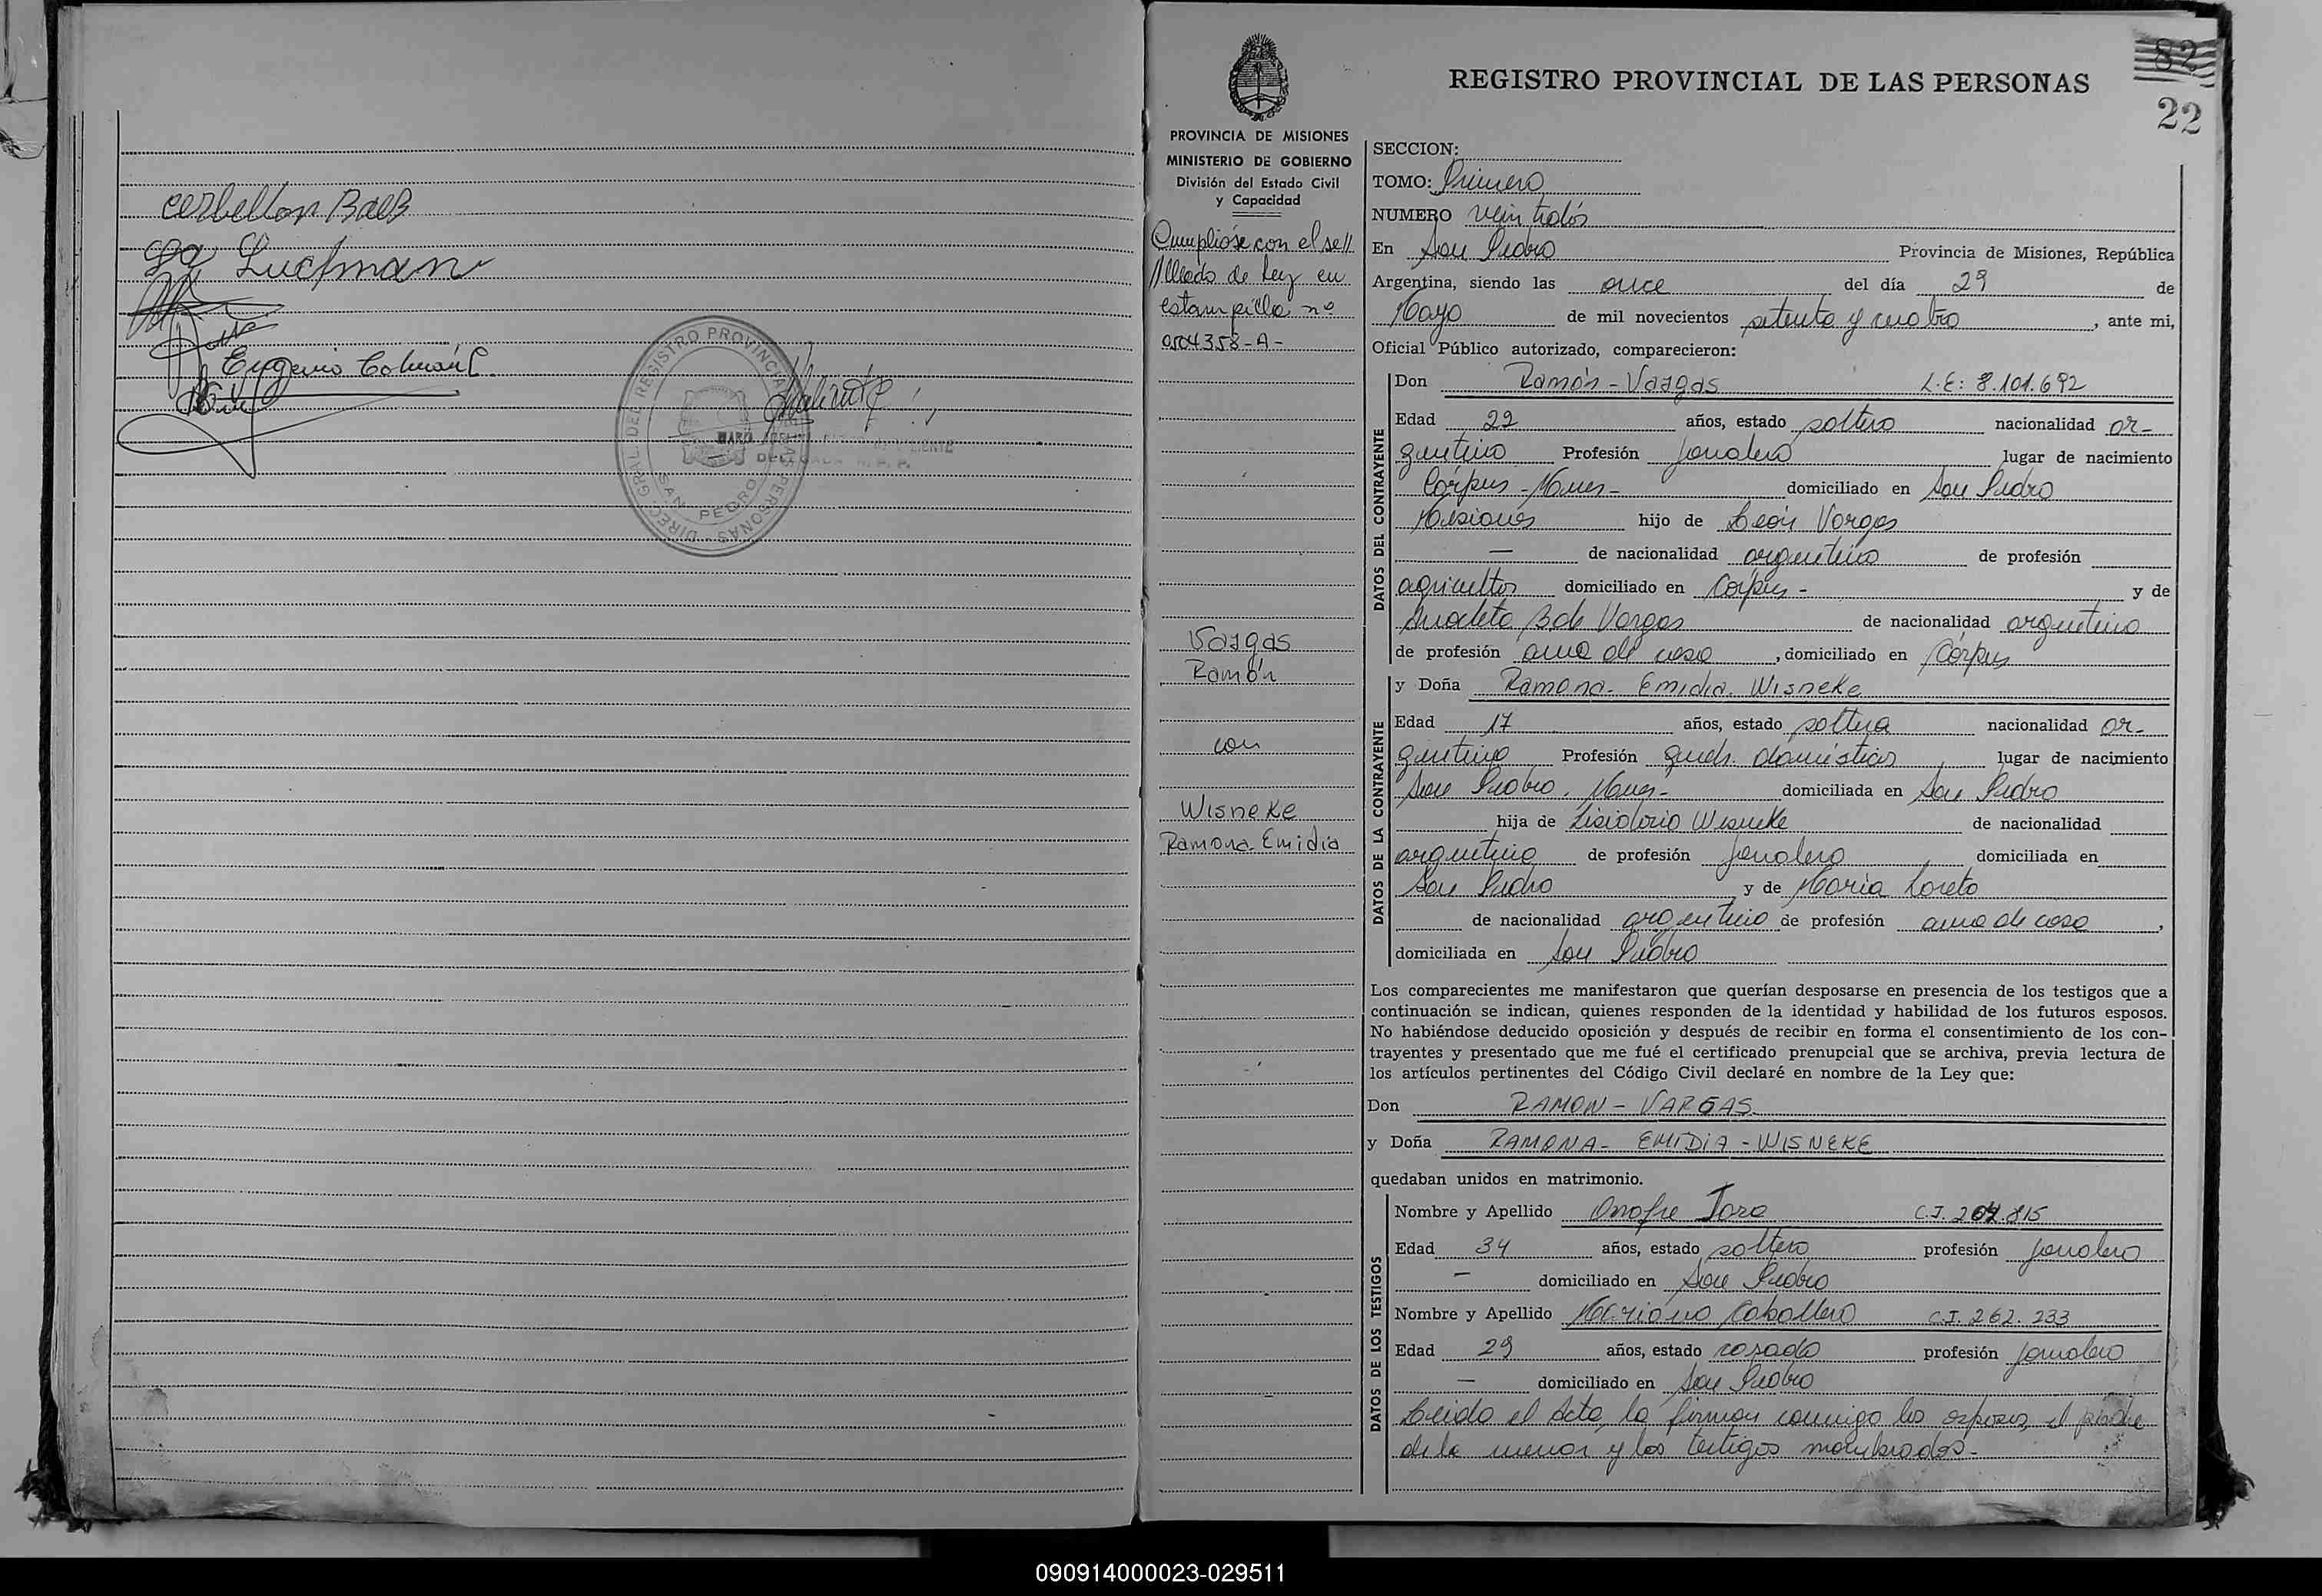 Cerbellon Baes
Lucfman
Eugenio Colmán C.
DIREC. GRAL. DEL REGISTRO PROVINCIAL DE LAS PERSONAS
SAN PEDRO
MARIA
REGISTRO PROVINCIAL DE LAS PERSONAS
82
22
PROVINCIA DE MISIONES
MINISTERIO DE GOBIERNO
División del Estado Civil
y Capacidad
Cumplióse con el se//
//llado de Ley en
estampilla nº
0504358-A-
Vargas
Ramón
con
Wisneke
Ramona Emidia
SECCION:
TOMO: Primero
NUMERO veintidós
En San Pedro Provincia de Misiones, República
Argentina, siendo las once del día 29 de
Mayo de mil novecientos setenta y cuatro, ante mi,
Oficial Público autorizado, comparecieron:
DATOS DEL CONTRAYENTE
Don Ramón - Vargas L.E: 8.101.692
Edad 22 años, estado soltero nacionalidad ar-
gentino Profesión jornalero lugar de nacimiento
Córpus - Mnes- domiciliado en San Pedro
Misiones hijo de León Vargas
— de nacionalidad argentino de profesión
agricultor domiciliado en Córpus - y de
Anacleta B de Vargas de nacionalidad argentina
de profesión ama de casa, domiciliado en Córpus
DATOS DE LA CONTRAYENTE
y Doña Ramona - Emidia - Wisneke
Edad 17 años, estado soltera nacionalidad ar-
gentina Profesión queh. domésticos lugar de nacimiento
San Pedro, Mnes- domiciliada en San Pedro
hija de Lisidorio Wisneke de nacionalidad
argentino de profesión jornalero domiciliada en
San Pedro y de María Loreto
de nacionalidad argentina de profesión ama de casa,
domiciliada en San Pedro
Los comparecientes me manifestaron que querían desposarse en presencia de los testigos que a
continuación se indican, quienes responden de la identidad y habilidad de los futuros esposos.
No habiéndose deducido oposición y después de recibir en forma el consentimiento de los con-
trayentes y presentado que me fué el certificado prenupcial que se archiva, previa lectura de
los artículos pertinentes del Código Civil declaré en nombre de la Ley que:
Don RAMON - VARGAS
y Doña RAMONA - EMIDIA - WISNEKE
quedaban unidos en matrimonio.
DATOS DE LOS TESTIGOS
Nombre y Apellido Onofre Jara C.I. 204.815
Edad 34 años, estado soltero profesión jornalero
— domiciliado en San Pedro
Nombre y Apellido Mariano Caballero C.I. 262.233
Edad 29 años, estado casado profesión jornalero
— domiciliado en San Pedro
Leida el Acta, la firman conmigo los esposos, el padre
de la menor y los testigos nombrados-
090914000023-029511